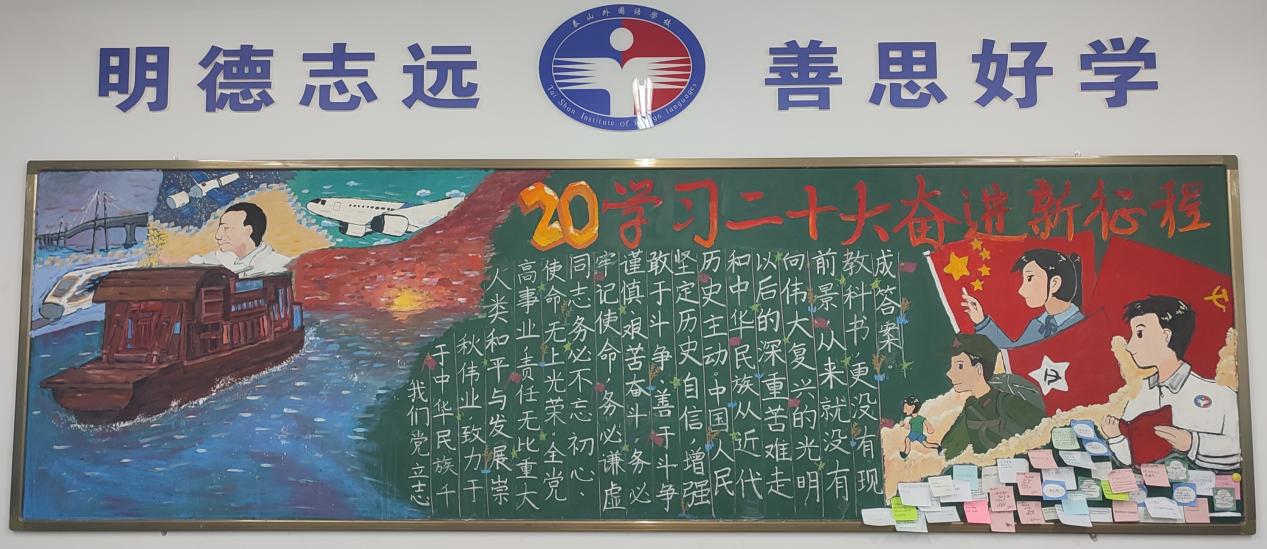 泰山外国语学校
明德志远
善思好学
Tai Shan Institute of foreign languages
20学习二十大奋进新征程
我们党立志
于中华民族千
秋伟业致力于
人类和平与发展崇
高事业,责任无比重大
使命无上光荣全党
同志务必不忘初心、
牢记使命,务必谦虚
谨慎、艰苦奋斗,务必
敢于斗争、善于斗争
坚定历史自信,增强
历史主动。中国人民
和中华民族从近代
以后的深重苦难走
向伟大复兴的光明
前景,从来就没有
教科书,更没有现
成答案.